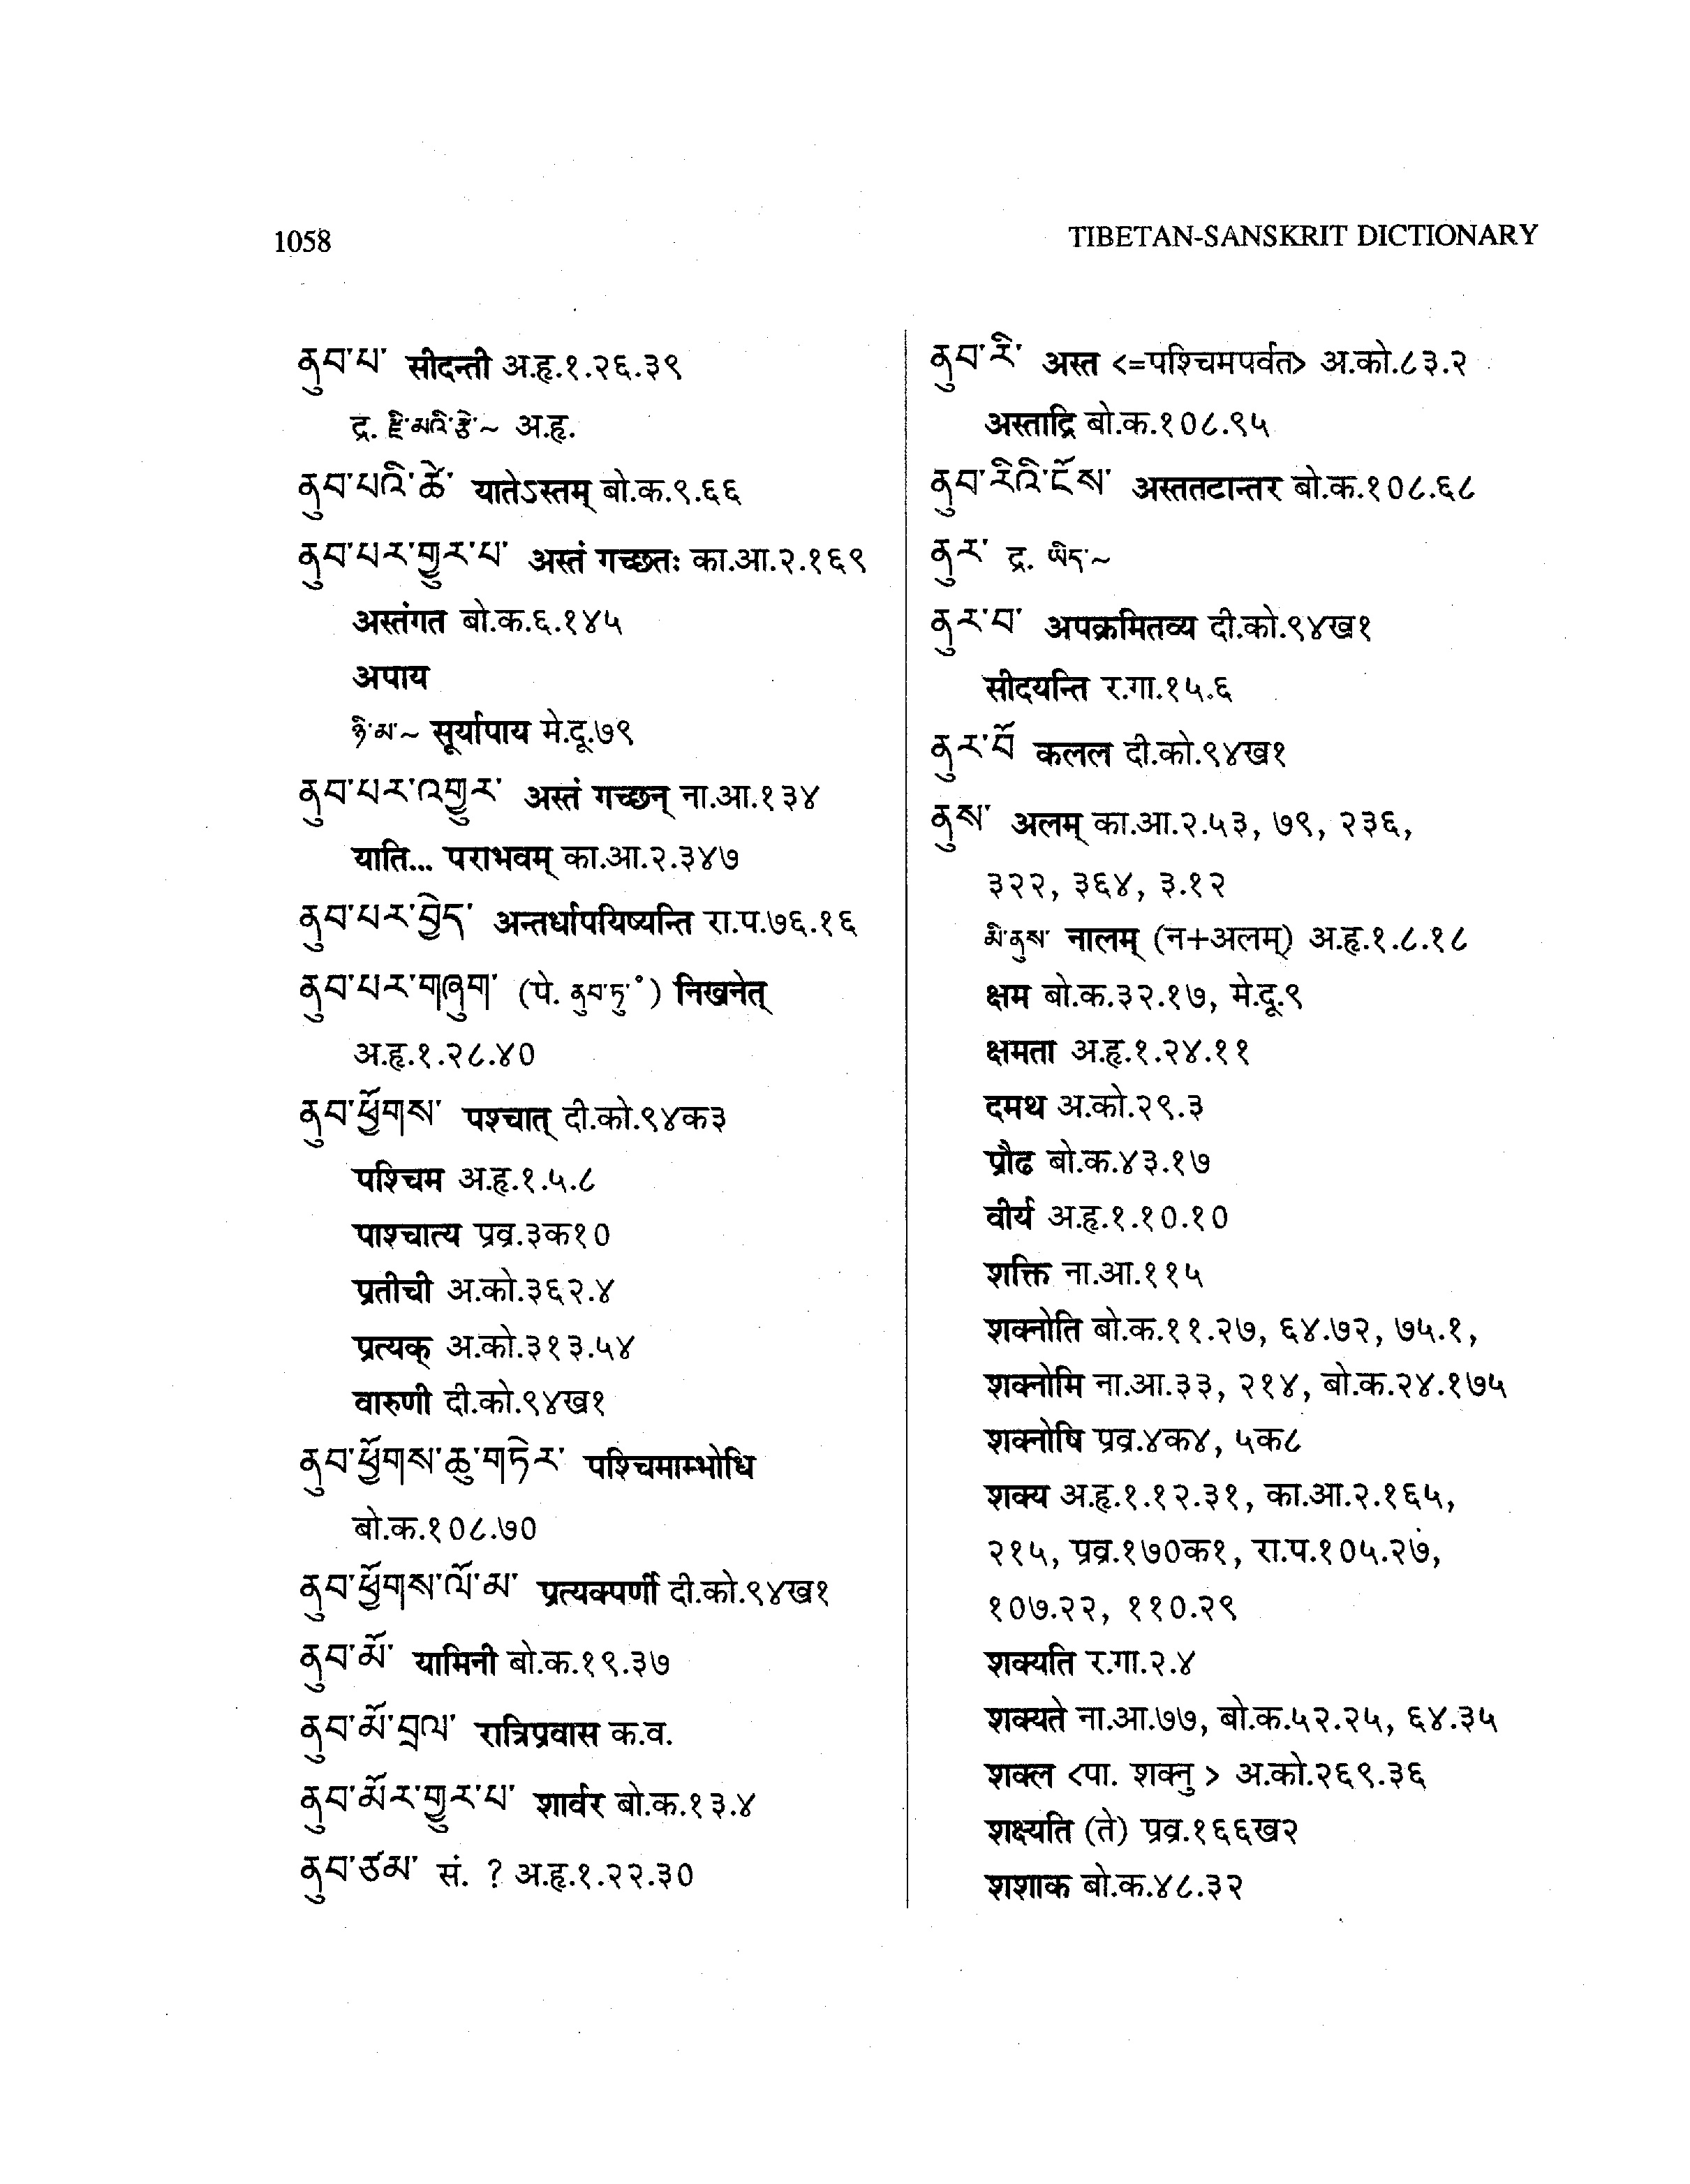 1058
TIBETAN-SANSKRIT DICTIONARY
ནུབ་པ་ सीदन्ती अ.हृ.१.२६.३९
द्र. རྫི་མའི་རྩེ་~ अ.हृ.
ནུབ་པའི་ཚེ་ यातेऽस्तम् बो.क.९.६६
ནུབ་པར་གྱུར་པ་ अस्तं गच्छतः का.आ.२.१६९
अस्तंगत बो.क.६.१४५
अपाय
ཉི་མ་~ सूर्यापाय मे.दू.७९
ནུབ་པར་འགྱུར་ अस्तं गच्छन् ना.आ.१३४
याति... पराभवम् का.आ.२.३४७
ནུབ་པར་བྱེད་ अन्तर्धापयिष्यन्ति रा.प.७६.१६
ནུབ་པར་གཞུག་ (पे. ནུབ་ཏུ་°) निखनेत्
अ.हृ.१.२८.४०
ནུབ་ཕྱོགས་ पश्चात् दी.को.९४क३
पश्चिम अ.हृ.१.५.८
पाश्चात्य प्रव्र.३क१०
प्रतीची अ.को.३६२.४
प्रत्यक् अ.को.३१३.५४
वारुणी दी.को.९४ख१
ནུབ་ཕྱོགས་ཆུ་གཏེར་ पश्चिमाम्भोधि
बो.क.१०८.७०
ནུབ་ཕྱོགས་ལོ་མ་ प्रत्यक्पर्णी दी.को.९४ख१
ནུབ་མོ་ यामिनी बो.क.१९.३७
ནུབ་མོ་བྲལ་ रात्रिप्रवास क.व.
ནུབ་མོར་གྱུར་པ་ शार्वर बो.क.१३.४
ནུབ་ཙམ་ सं. ? अ.हृ.१.२२.३०
ནུབ་རི་ अस्त <=पश्चिमपर्वत> अ.को.८३.२
अस्ताद्रि बो.क.१०८.९५
ནུབ་རིའི་ངོས་ अस्ततटान्तर बो.क.१०८.६८
ནུར་ द्र. ཡིད་~
ནུར་བ་ अपक्रमितव्य दी.को.९४ख१
सीदयन्ति र.गा.१५.६
ནུར་པོ་ कलल दी.को.९४ख१
ནུས་ अलम् का.आ.२.५३, ७९, २३६,
३२२, ३६४, ३.१२
མི་ནུས་ नालम् (न+अलम्) अ.हृ.१.८.१८
क्षम बो.क.३२.१७, मे.दू.९
क्षमता अ.हृ.१.२४.११
दमथ अ.को.२९.३
प्रौढ बो.क.४३.१७
वीर्य अ.हृ.१.१०.१०
शक्ति ना.आ.११५
शक्नोति बो.क.११.२७, ६४.७२, ७५.१,
शक्नोमि ना.आ.३३, २१४, बो.क.२४.१७५
शक्नोषि प्रव्र.४क४, ५क८
शक्य अ.हृ.१.१२.३१, का.आ.२.१६५,
२१५, प्रव्र.१७०क१, रा.प.१०५.२७,
१०७.२२, ११०.२९
शक्यति र.गा.२.४
शक्यते ना.आ.७७, बो.क.५२.२५, ६४.३५
शक्ल <पा. शक्नु > अ.को.२६९.३६
शक्ष्यति (ते) प्रव्र.१६६ख२
शशाक बो.क.४८.३२